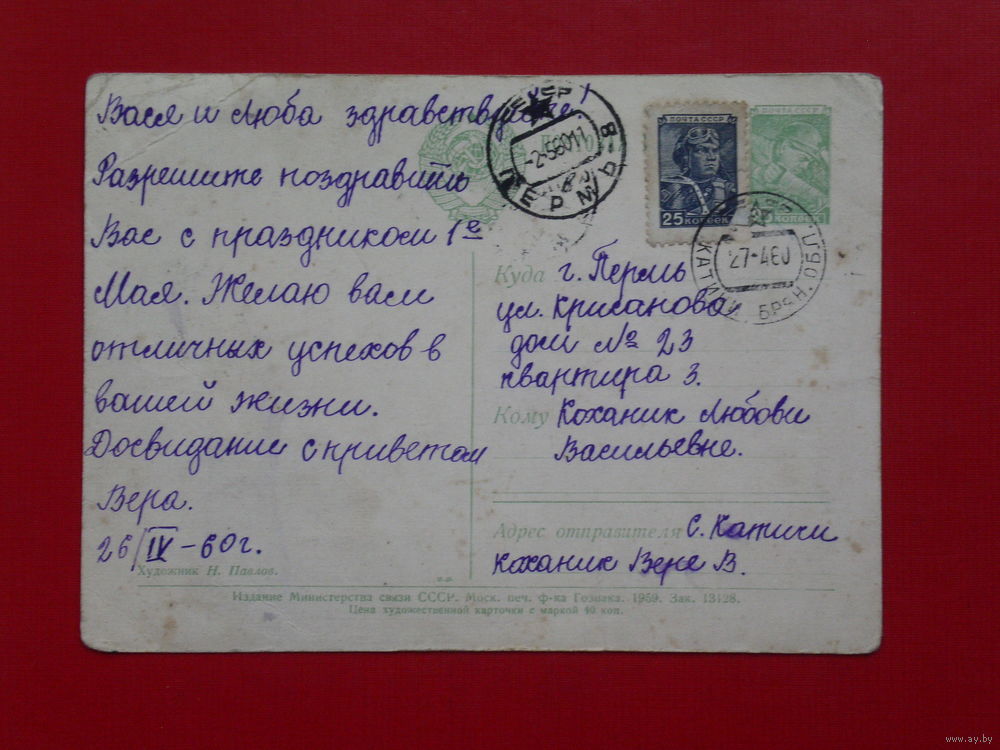 Вася и Люба здравствуйте!
Разрешите поздравить
Вас с праздником 1е
Мая. Желаю вам
отличных успехов в
вашей жизни.
Досвидание с приветом
Вера.
26/IV-60г.
Художник Н. Павлов.
ПЕРМЬ
-2-56017
ПОЧТА СССР
25 КОПЕЕК
ПОЧТА СССР
КОПЕЕК
27-460
КАТИЧИ БРЯН. ОБЛ.
Куда г. Пермь
ул. Крисанова
дом № 23
квартира 3.
Кому Коханик Любови
Васильевне.
Адрес отправителя С. Катичи
Коханик Вере В.
Издание Министерства связи СССР. Моск. печ. ф-ка Гознака. 1959. Зак. 13128.
Цена художественной карточки с маркой 40 коп.
www.ay.by